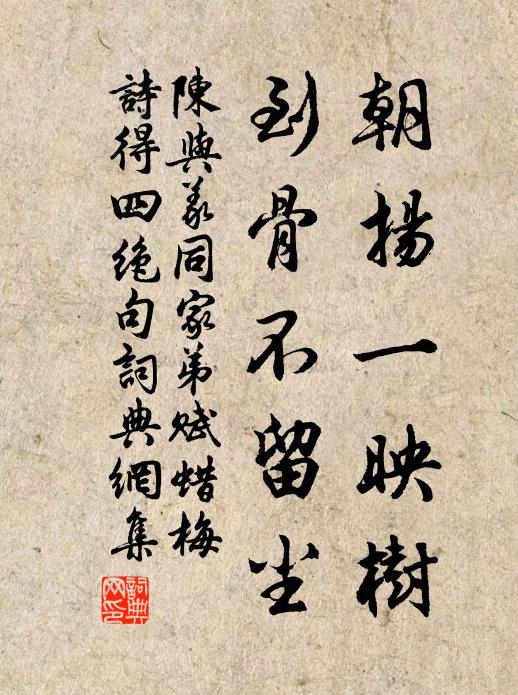 朝揚一映樹
到骨不留尘
陳與義同家弟賦蜡梅
詩得四絶句詞典網集
詞典网印